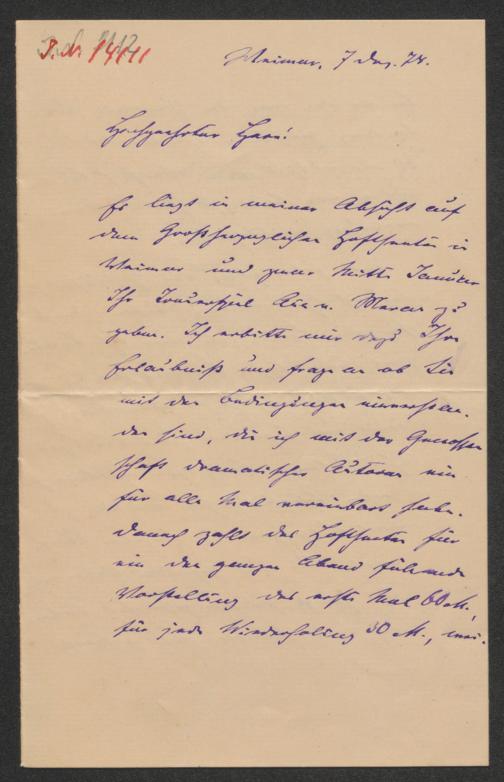 Weimar, 7 Dez. 74.
Hochgeehrter Herr!
Es liegt in meiner Absicht auf
dem Großherzoglichen Hoftheater in
Weimar und zwar Mitte Januar
Ihr Trauerspiel zu
geben. Ich erbitte mir dazu Ihre
Erlaubniß und frage an ob Sie
mit den Bedingungen einverstan-
den sind, die ich mit der Genossen
schaft dramatischer Autoren ein
für alle Mal vereinbart habe.
Danach zahlt das Hoftheater für
ein den ganzen Abend füllende
Vorstellung das erste Mal 60 M.,
für jede Wiederholung 30 M.,